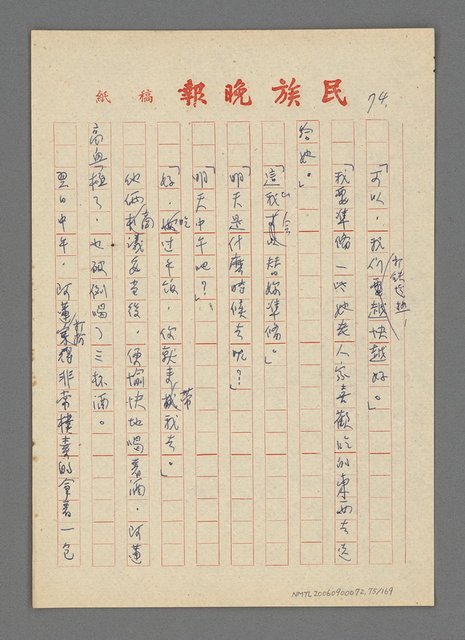 民族晚報 稿紙
74.
「可以，我们打鉄趁熱！越快越好。」
「我要準備一些她老人家喜歡吃的東西去送
給她。」
「這我會替妳準備。」
「明天是什麼時候去呢？」
「明天中午吧？」
「好，吃过午飯，你就來帶我去。」
他倆商議妥当後，便愉快地喝着酒，阿蓮
高興極了，也破例喝了三杯酒。
翌日中午，阿蓮打扮得非常樸素的拿着一包
NMTL20060900072.75/169